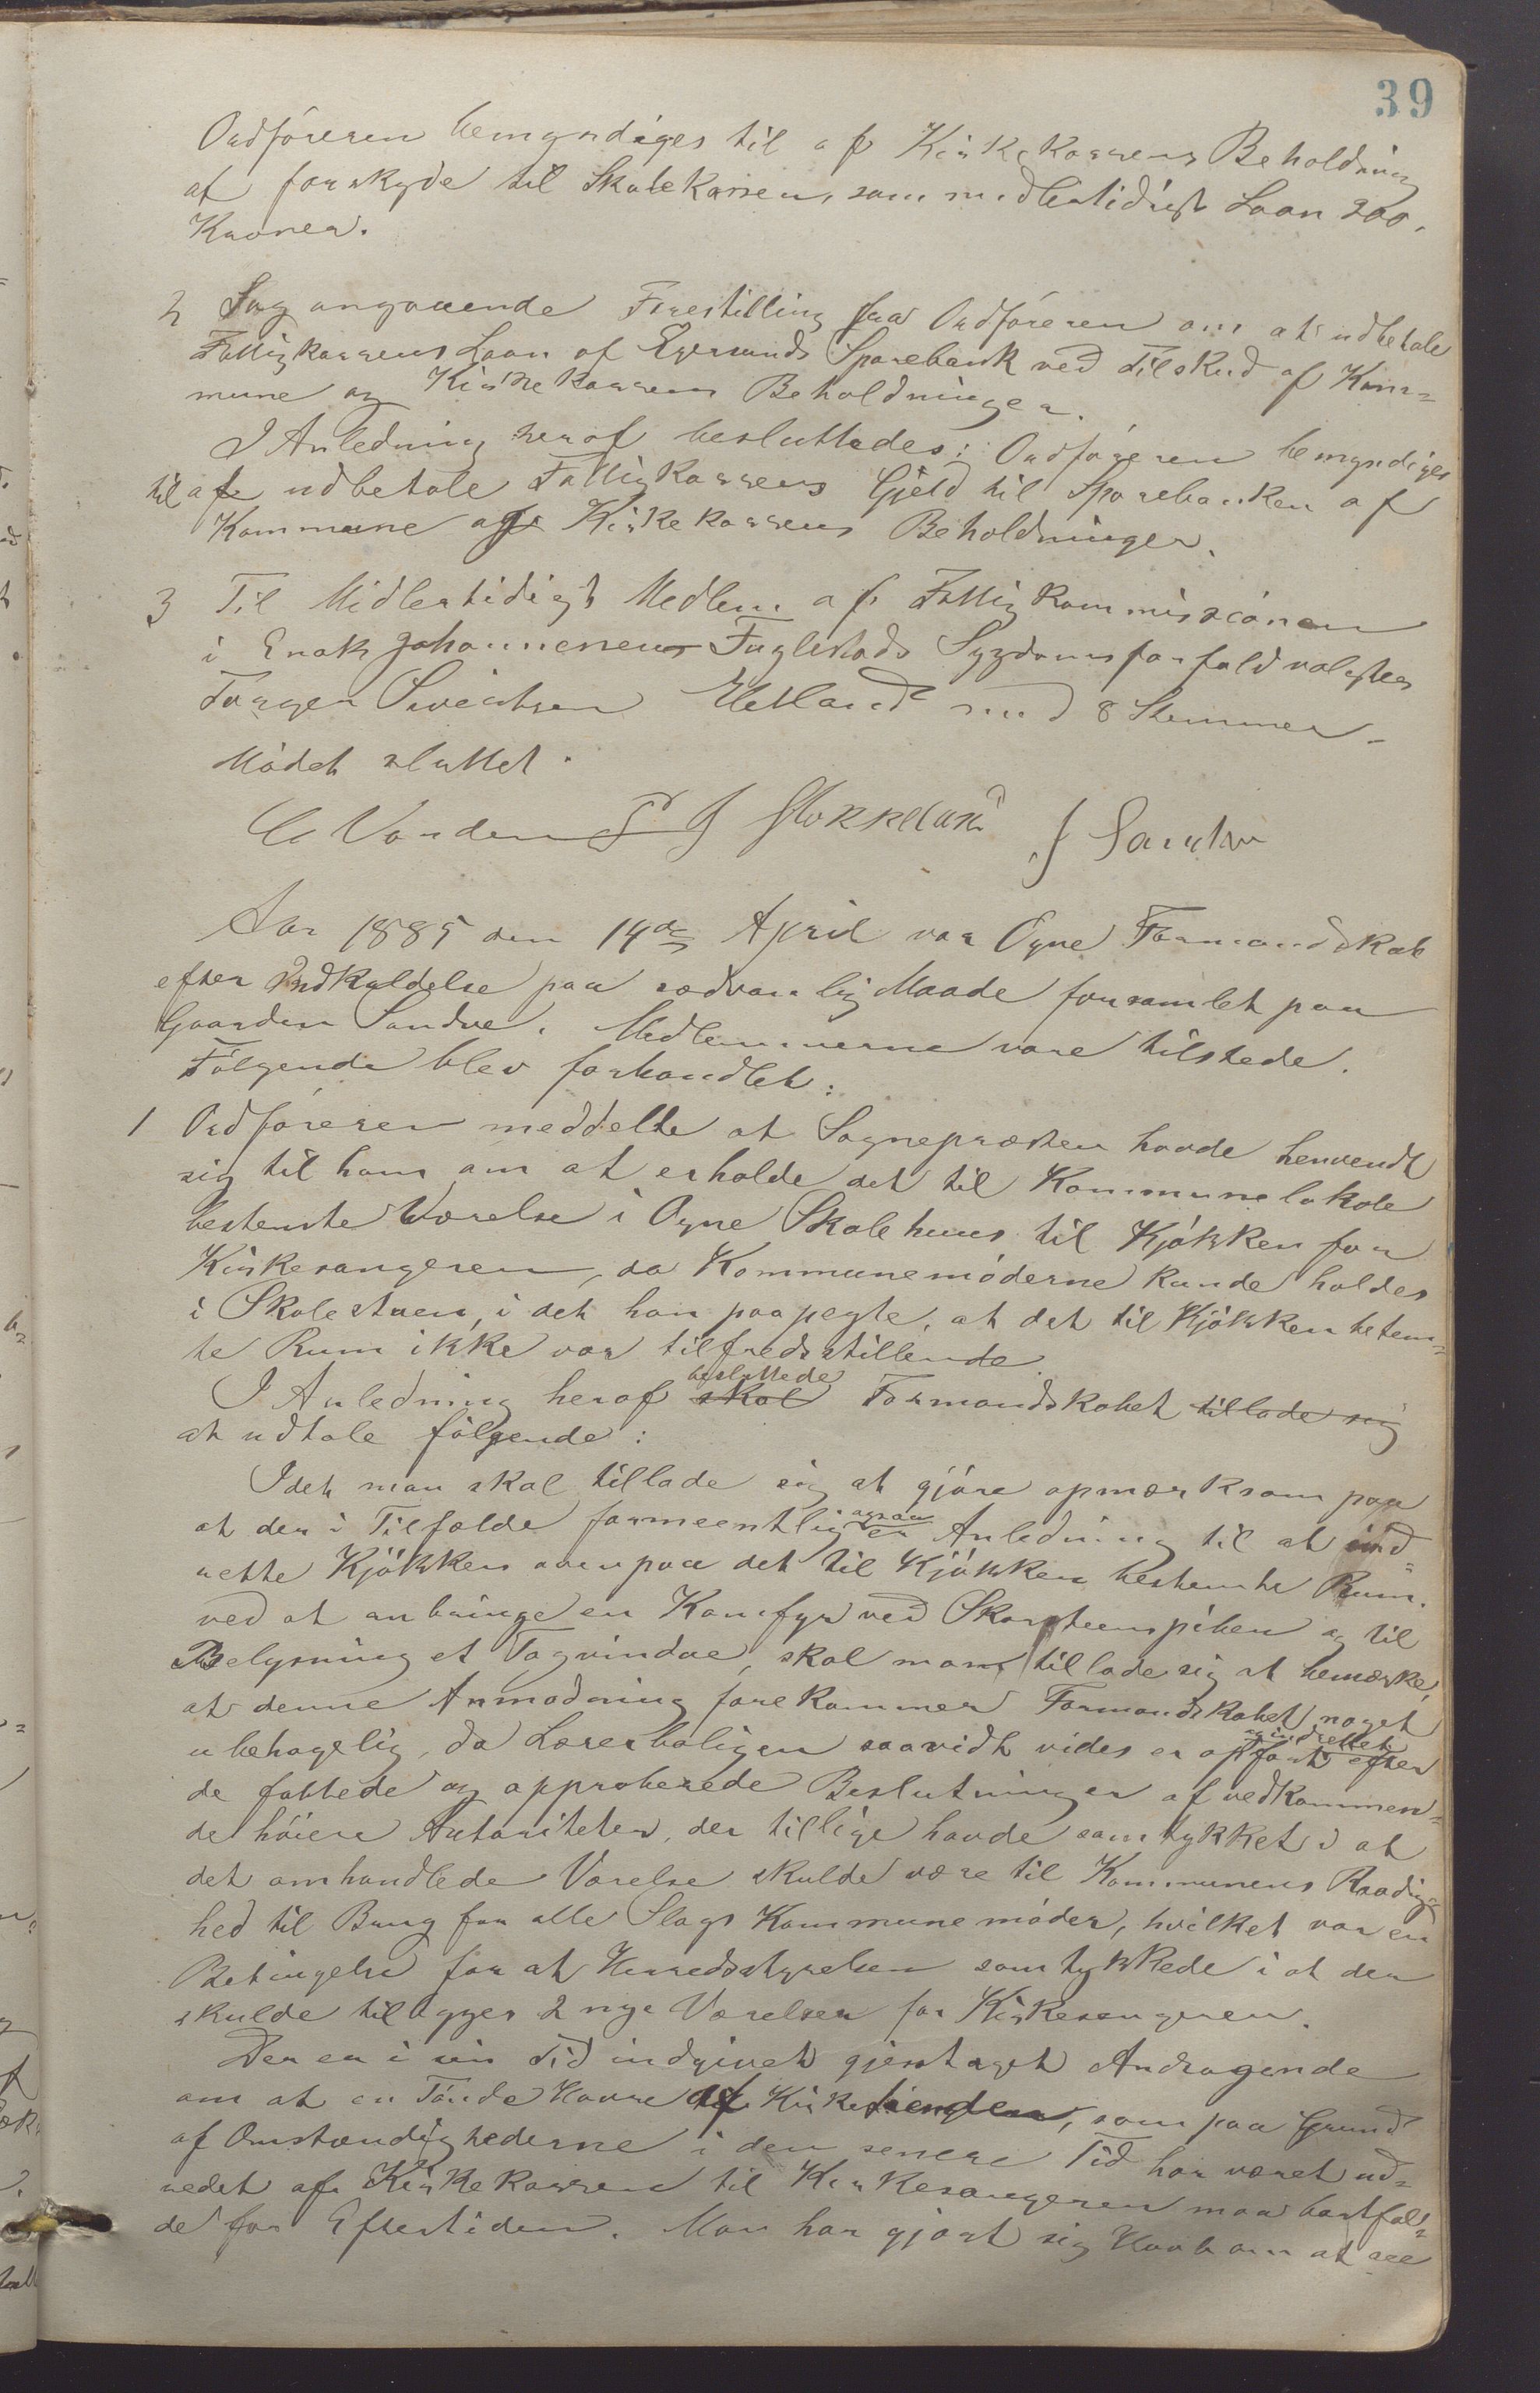 39
Ordføreren bemyndiges til af Kirkekassens Beholdning
at forskyde til Skolekassen, som midlertidigt Laan 200.
Kroner.
2 Sag angaaende Forestilling fra Ordføreren om at udbetale
Fattigkassens Laan af Egersunds Sparebank ved Tilskud af Kom-
mune og Kirkekassens Beholdninger.
I Anledning heraf besluttedes: Ordføreren bemyndiges
til at udbetale Fattigkassens Gjeld til Sparebanken af
Kommune og Kirkekassens Beholdninger.
3 Til Midlertidigt Medlem af Fattigkommissionen
i Enok Johannesens Fuglestads Sygdomsforfald valgtes
Torger Sivertsen Hetland med 8 Stemmer.
Mødet sluttet.
J Stokkeland J Sandve
Aar 1885 den 14de April var Ogne Formandskab
efter Indkaldelse paa sedvanlig Maade forsamlet paa
Gaarden Sandve. Medlemmerne vare tilstede.
Følgende blev forhandlet:
1 Ordføreren meddelte at Sognepræsten havde henvendt
sig til ham om at erholde det til Kommunelokale
bestemte Værelse i Ogne Skolehuus til Kjøkken for
Kirkesangeren, da Kommunemøderne kunde holdes
i Skolestuen, i det han paapegte, at det til Kjøkken bestem-
te Rum ikke var tilfredsstillende.
I Anledning heraf skal besluttede Formandskabet tillade sig
at udtale følgende:
Idet man skal tillade sig at gjøre opmærksom paa
at der i Tilfælde formeentlig ogsaa er Anledning til at ind-
rette Kjøkken ovenpaa det til Kjøkken bestemte Rum.
ved at anbringe en Komfyr ved Skorsteenspiben og til
Belysning et Tagvindue, skal man tillade sig at bemærke,
at denne Anmodning forekommer Formandskabet noget
ubehagelig, da Lærerboligen saavidt vides er opført og indrettet efter
de fattede og approberede Beslutninger af vedkommen-
de høiere Autoriteter, der tillige havde samtykket i at
det omhandlede Værelse skulde være til Kommunens Raadig-
hed til Brug for alle Slags Kommunemøder, hvilket var en
Betingelse for at Herredsstyrelsen samtykkede i at der
skulde tilbygges 2 nye Værelser for Kirkesangeren.
Der er i sin Tid indgivet gjentaget Andragende
om at en Tønde Havre af Kirketienden, som paa Grund
af Omstændighederne i den senere Tid har været ud-
redet af Kirkekassen til Kirkesangeren maa bortfal-
de for Eftertiden. Man har gjort sig Haab om at see